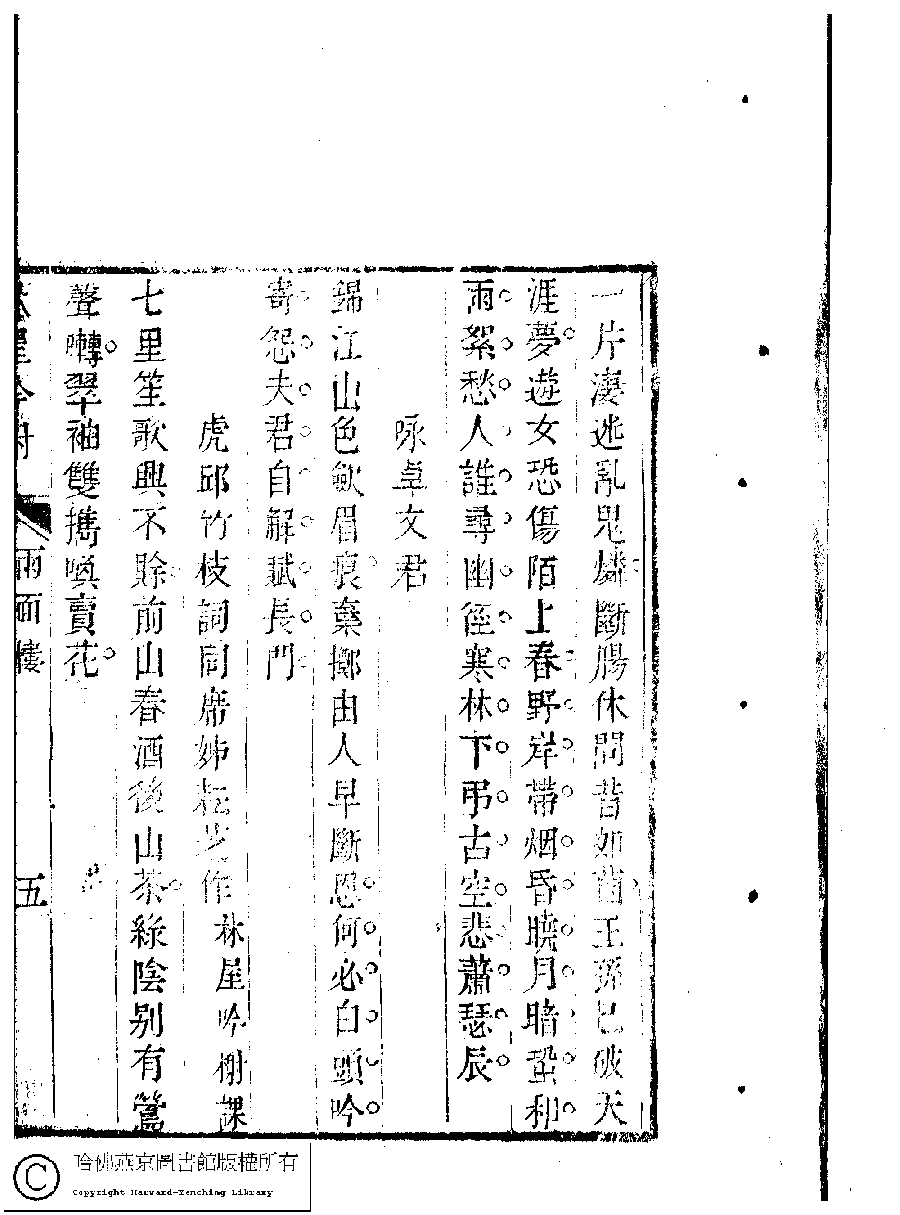 一片淒迷亂思燐斷腸休問昔如茵王孫已破天
涯夢遊女恐傷陌上春野岸帶烟昏曉月暗蛩和
雨絮愁人誰尋幽徑寒林下弔古空悲蕭瑟辰
咏卓文君
錦江山色歛眉痕棄擲由人早斷恩何必白頭吟
寄怨夫君自解賦長門
虎邱竹枝詞同席姊耘芝作 林屋吟榭課
七里笙歌興不賒前山春酒後山茶綠陰別有鶯
聲囀翠袖雙擕喚賣花
林屋吟榭 兩面樓 五
哈佛燕京圖書館版權所有
Copyright Harvard-Yenching Library